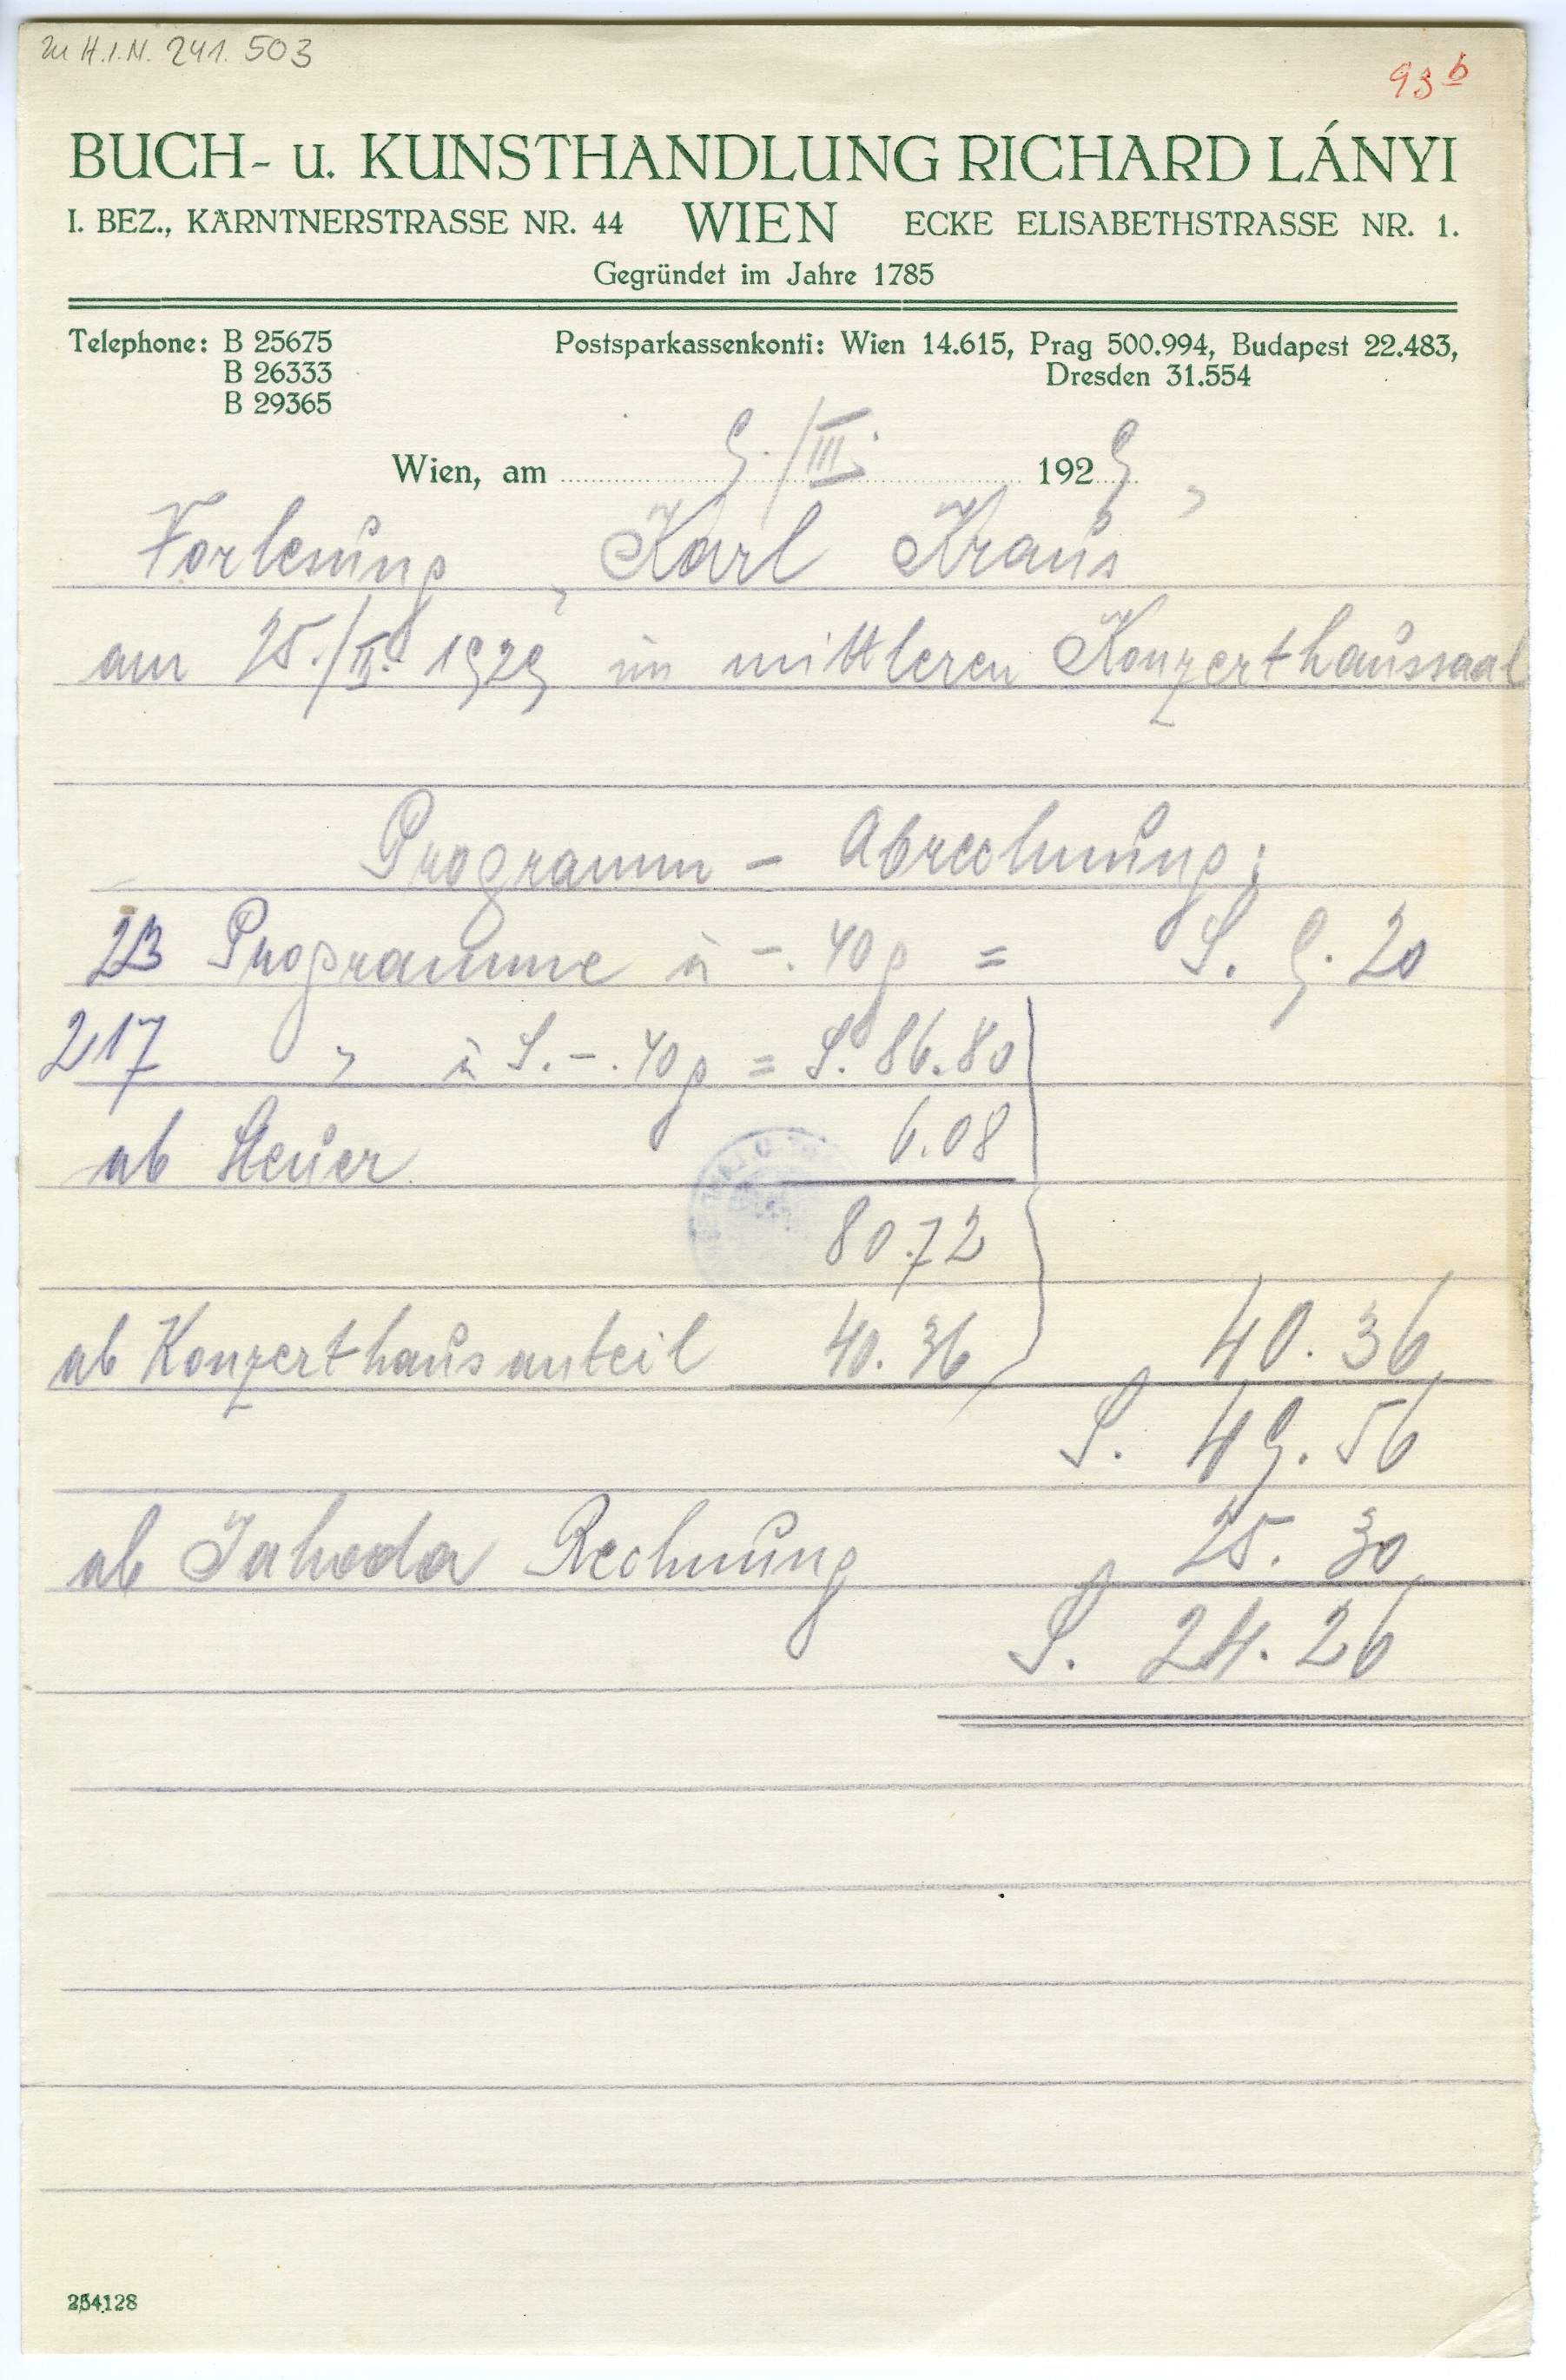 zu H.I.N. 241.503
93 b
BUCH- u. KUNSTHANDLUNG RICHARD LÁNYI
I. BEZ., KÄRNTNERSTRASSE NR. 44 WIEN ECKE ELISABETHSTRASSE NR. 1.
Gegründet im Jahre 1785
Telephone: B 25675
B 26333
B 29365
Postsparkassenkonti: Wien 14.615, Prag 500.994, Budapest 22.483,
Dresden 31.554
Wien, am 9./III. 1929
Vorlesung „Karl Kraus“
am 25./II. 1929 im mittleren Konzerthaussaal
Programm - Abrechnung:
23 Programme à -.40 g = S. 9.20
217 " à S. -.40 g = S. 86.80
ab Steuer 6.08
80.72
ab Konzerthausanteil 40.36 „ 40.36
S. 49.56
ab Jahoda Rechnung „ 25.30
S. 24.26
254128